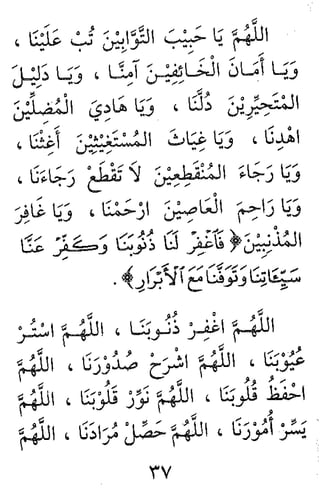 اللَّهُمَّ يَا حَبِيْبَ التَّوَّابِيْنَ تُبْ عَلَيْنَا ،
وَيَا أَمَانَ الْخَائِفِيْنَ آمِنَّا ، وَيَا دَلِيْلَ
الْمُتَحَيِّرِيْنَ دُلَّنَا ، وَيَا هَادِيَ الْمُضِلِّيْنَ
اهْدِنَا ، وَيَا غِيَاثَ الْمُسْتَغِيْثِيْنَ أَغِثْنَا ،
وَيَا رَجَاءَ الْمُنْقَطِعِيْنَ لَا تَقْطَعْ رَجَاءَنَا ،
وَيَا رَاحِمَ الْعَاصِيْنَ ارْحَمْنَا ، وَيَا غَافِرَ
الْمُذْنِبِيْنَ ﴿ فَاغْفِرْ لَنَا ذُنُوبَنَا وَكَفِّرْ عَنَّا
سَيِّئَاتِنَا وَتَوَفَّنَا مَعَ الْأَبْرَارِ ﴾ .
اللَّهُمَّ اغْفِرْ ذُنُوبَنَا ، اللَّهُمَّ اسْتُرْ
عُيُوْبَنَا ، اللَّهُمَّ اشْرَحْ صُدُوْرَنَا ، اللَّهُمَّ
احْفَظْ قُلُوبَنَا ، اللَّهُمَّ نَوِّرْ قُلُوبَنَا ، اللَّهُمَّ
يَسِّرْ أُمُوْرَنَا ، اللَّهُمَّ حَصِّلْ مُرَادَنَا ، اللَّهُمَّ
٣٧